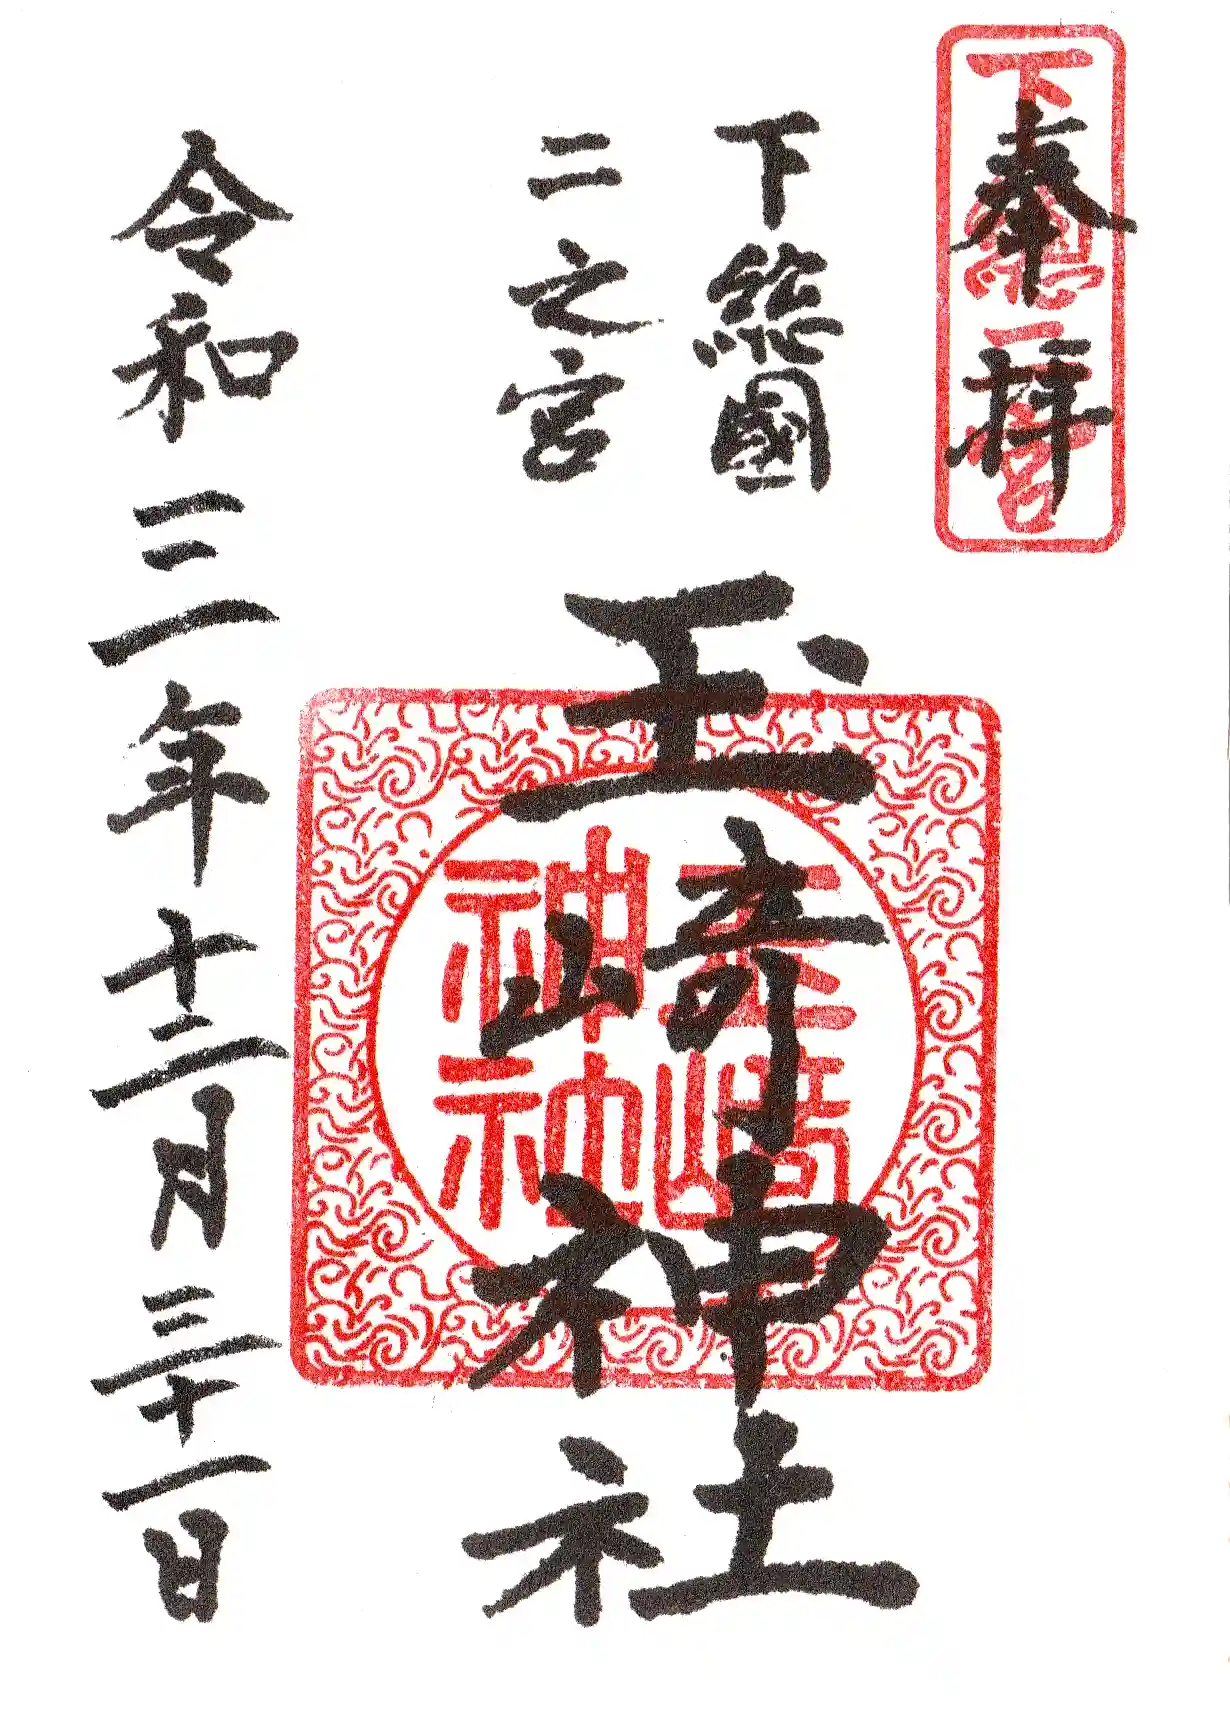 奉拝
下總二宮
下総國
二之宮
玉崎神社
玉崎神社
令和三年十二月三十一日